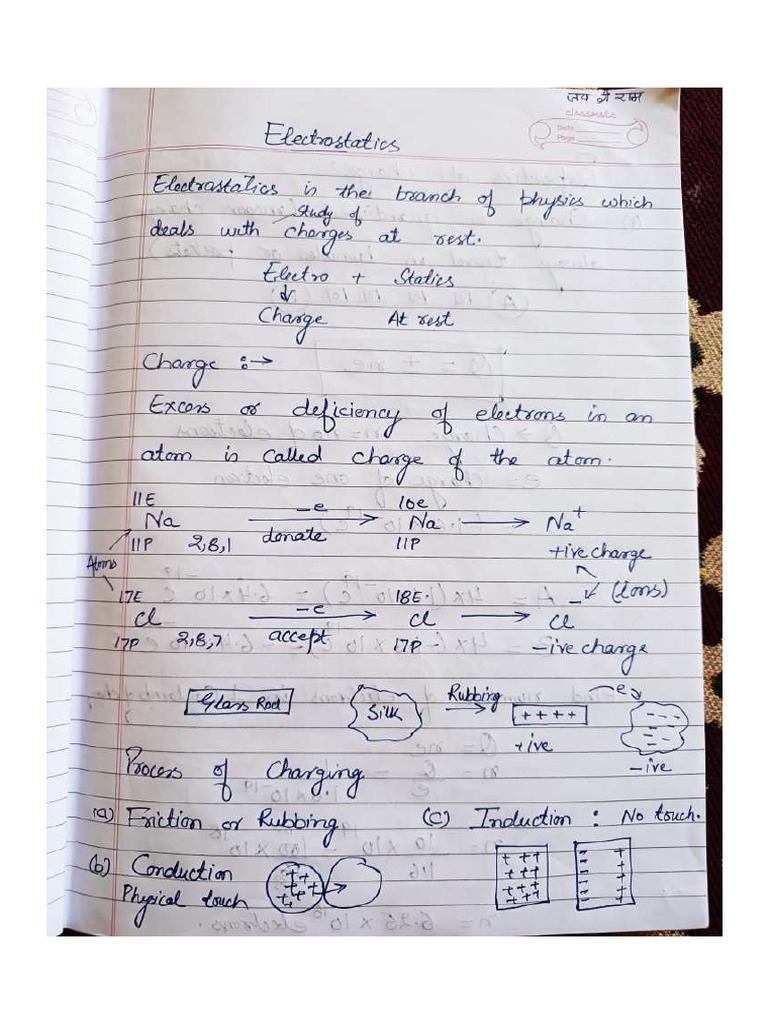 जय श्री राम
classmate
Date
Page
Electrostatics
Electrostatics is the branch of physics which
study of
deals with charges at rest.
Electro + Statics
↓
Charge At rest
Charge :→
Excess or deficiency of electrons in an
atom is called charge of the atom.
11E 10e
Na —e donate → Na → Na+
11P 2,8,1 11P +ive charge
Atoms
(Ions)
17E 18E.
Cl —e accept → Cl → Cl-
17P 2,8,7 17P -ive charge
Glass Rod Silk Rubbing → + + + + e
+ive -ive
Process of Charging
(a) Friction or Rubbing (c) Induction : No touch.
(b) Conduction
Physical touch